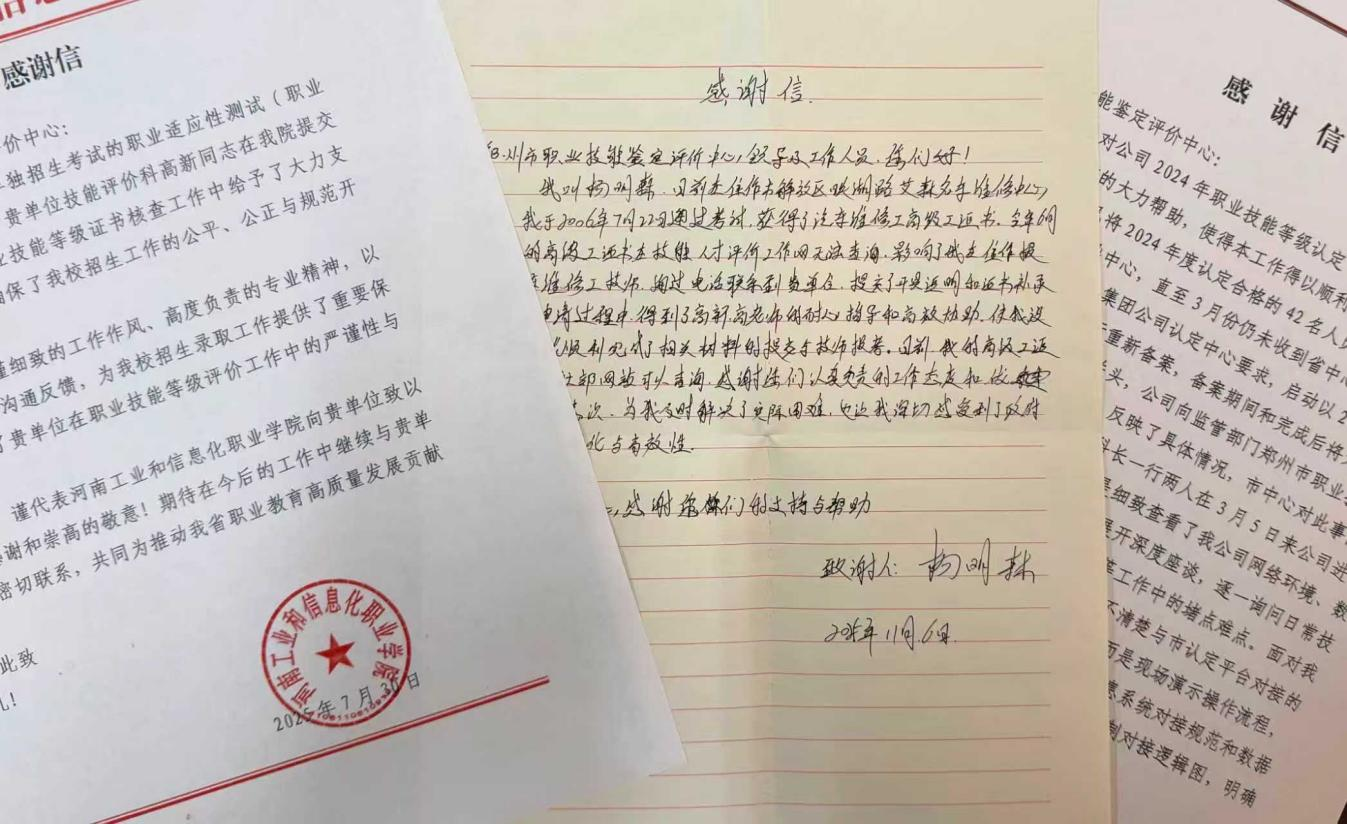 感谢信
评价中心:
独招生考试的职业适应性测试(职业
贵单位技能评价科高新同志在我院提交
业技能等级证书核查工作中给予了大力支
确保了我校招生工作的公平、公正与规范开
谨细致的工作作风、高度负责的专业精神,以
沟通反馈,为我校招生录取工作提供了重要保
了贵单位在职业技能等级评价工作中的严谨性与
谨代表河南工业和信息化职业学院向贵单位致以
感谢和崇高的敬意!期待在今后的工作中继续与贵单
密切联系,共同为推动我省职业教育高质量发展贡献
此致
礼!
河南工业和信息化职业学院
2025年7月30日
感谢信
州市职业技能鉴定评价中心,领导及工作人员,你们好!
我叫杨明森,目前在焦作市解放区映湖路艾森名车维修中心,
我于2006年7月22日通过考试,获得了汽车维修工高级工证书。今年6月
的高级工证书在技能人才评价工作网无法查询,影响了我在焦作报
维修工技师,通过电话联系到贵单位,提交了开具证明和证书补录
申请过程中,得到了高新高老师的耐心指导和高效协助,使我没
顺利完成了相关材料的提交与技师报考。目前,我的高级工证
部网站可以查询,感谢你们认真负责的工作态度和
次,为我及时解决了实际困难,也让我深切感受到了政府
化与有效性。
感谢你们的支持与帮助
致谢人:杨明森
2025年11月6日
感谢信
能鉴定评价中心:
对公司2024年职业技能等级认定
的大力帮助,使得本工作得以顺利
将2024年度认定合格的42名人员
中心,直至3月份仍未收到省中心
集团公司认定中心要求,启动以2
重新备案,备案期间和完成后将
头,公司向监管部门郑州市职业
反映了具体情况,市中心对此事
科长一行两人在3月5日来公司进
细致查看了我公司网络环境、数
展开深度座谈,逐一询问日常技
工作中的堵点难点。面对我
不清楚与市认定平台对接的
而是现场演示操作流程,
息系统对接规范和数据
制对接逻辑图,明确